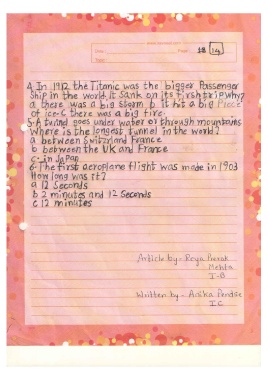 18 14
4. In 1912 the Titanic was the bigger Passenger
Ship in the world, it Sank on its first trip, why?
a there was a big Storm b it hit a big Piece
of ice-C there was a big fire.
5-A tunnel goes under water or through mountains
Where is the longest tunnel in the world?
a between Switzerland France
b between the UK and France
c- in Japan
6-The first aeroplane flight was made in 1903
How long was it?
a 12 Seconds
b 2 minutes and 12 Seconds
c 12 minutes
Article by:-
Mehta
I-B
Written by:- Anika
I C